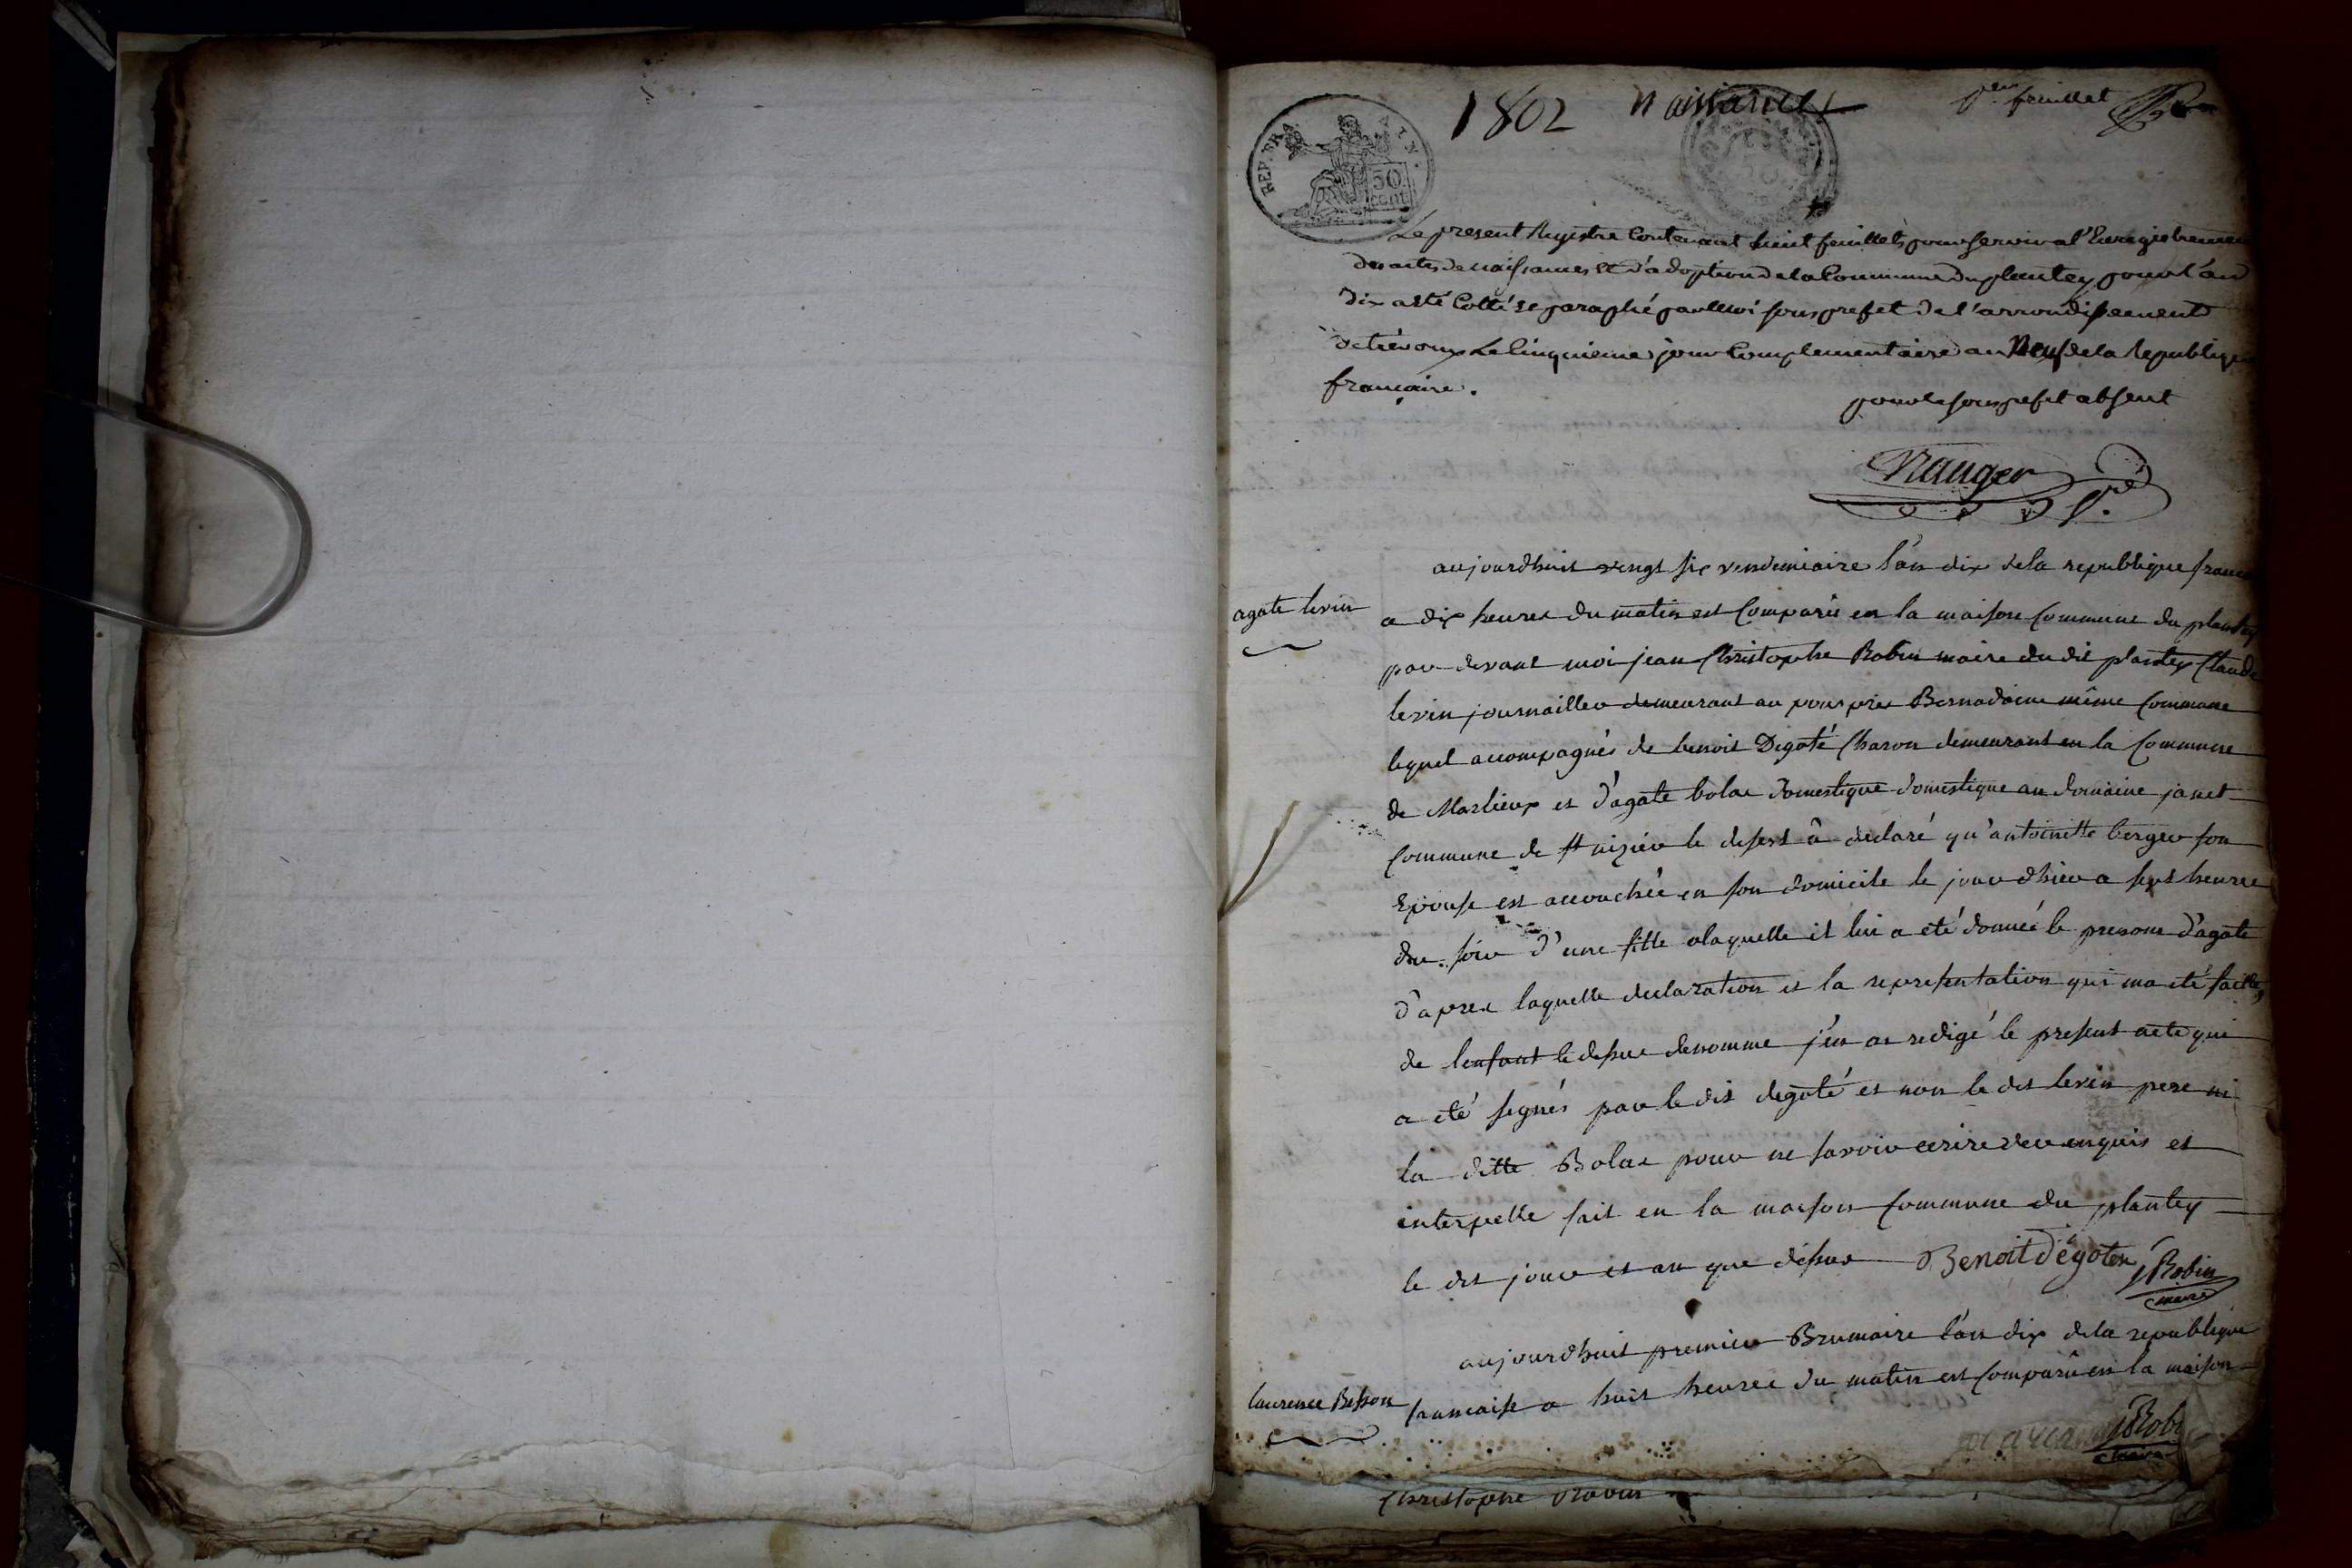 1802 naissances
1er feuillet
REP. FRA. 
50
cent
Le present Registre Contenant huit feuillets pour servir a l'Enregistrement
des actes de naissances et d'adoption de la Commune du plantey pour l'an
dix a été Cotté et paraphé par moi sous prefet de l'arrondissement
de trévoux Le Cinquieme jour Complementaire an Neuf de la Republique
francaise.
pour le sous prefet absent
aujourdhuit vingt six vendemiaire l'an dix de la republique franca
agate levin
a dix heures du matin est Comparû en la maison Commune du plantey
par devant moi jean Christophe Robin maire du dit plantey Claude
levin journailler demeurant au pres Bernadieme même Commune
lequel accompagnés de benoit Degoté Charon demeurant en la Commune
de Marlieux et d'agate bolac domestique domestique au domaine janet
Commune de st nizier le desert â declaré qu'antoinette berger son
Epouse est accouchée en son domicile le jour dhier a sept heures
du soir d'une fille alaquelle il lui a eté donneé le prenom d'agate
d'apres laquelle declaration et la representation qui ma eté faitte,
de lenfant le desus denomme j'en ai redigé le present acte qui
a eté segnés par le dit degoté et non le dit levin pere ni
la ditte Bolac pour ne savoir ecrire de ce enquis et
interpelle fait en la maison Commune du plantey
le dit jour et an que desus Benoit dégoten JRobin
maire
aujourdhuit premier Brumaire l'an dix de la republique
laurence Besson
francaise a huit heures du matin est Comparû en la maison
JRobin
maire
Christophe Robin